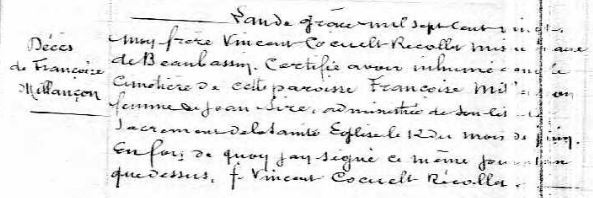 Décès
de Françoise
Millançon
L'an de grâce mil sept cent vingt
moy frere Vincent Cocuelt Recollet
de Beaubassin. Certifie avoir inhumé le
Cimetière de cette paroisse Françoise
femme de Jean Sire, administrée de
Sacrement de la Sainte Eglise le 12 du mois de
En foi de quoy jay signé ce même
que dessus. f Vincent Cocuelt Récollet.